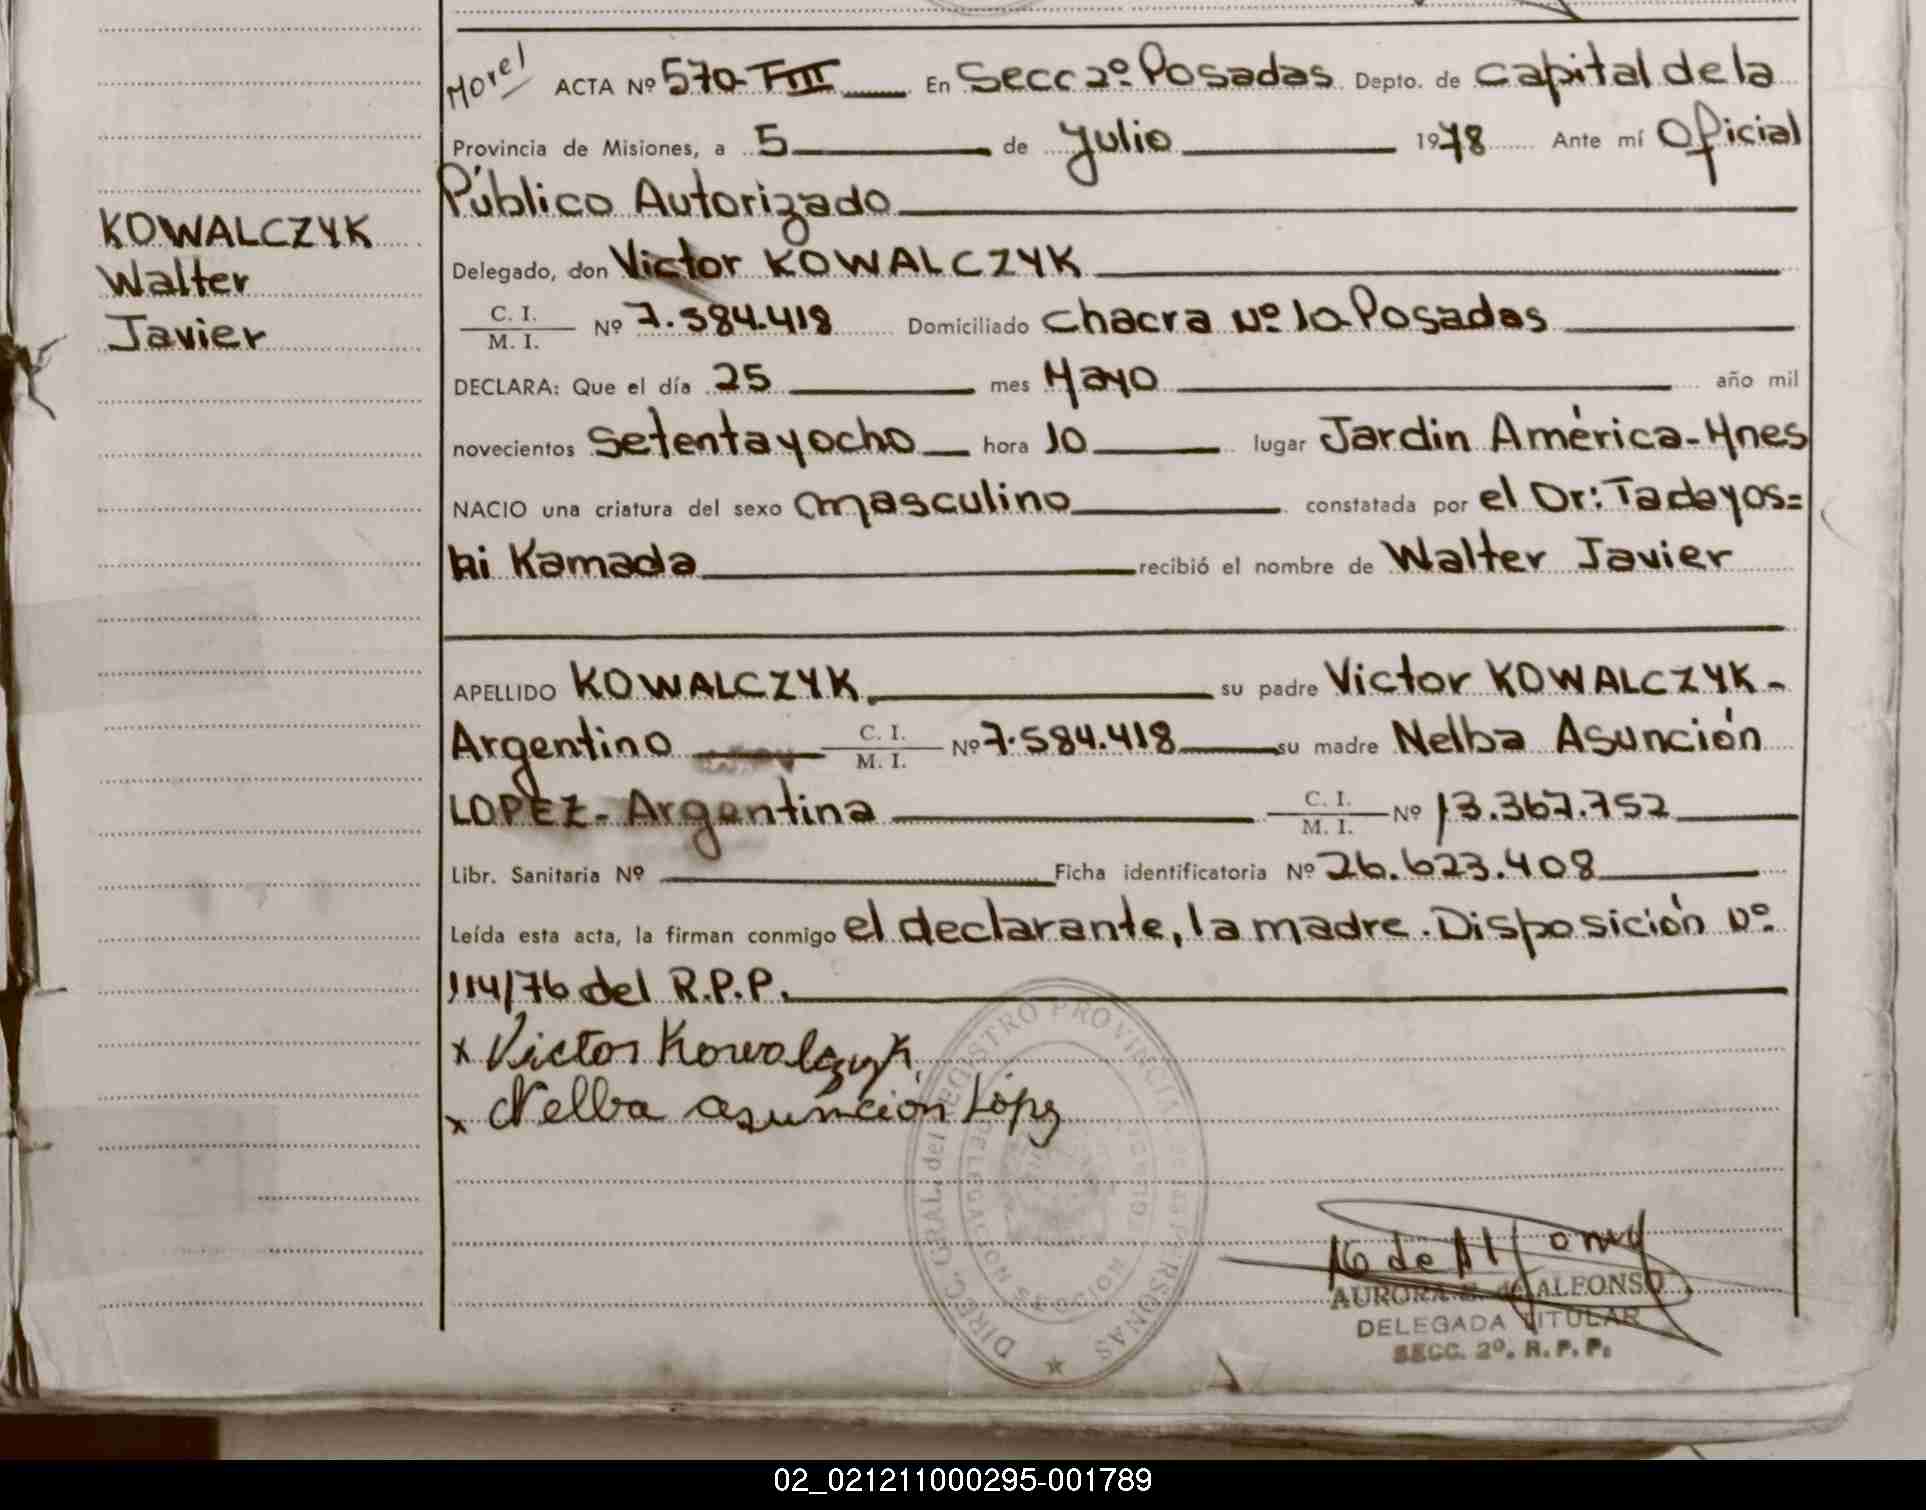 Morel ACTA Nº 570-TIII En Secc 2º Posadas Depto. de Capital de la
Provincia de Misiones, a 5 de Julio 1978 Ante mí Oficial
Público Autorizado
KOWALCZYK
Walter
Javier
Delegado, don Victor KOWALCZYK
C. I.
M. I. Nº 7.584.418 Domiciliado Chacra Nº 10-Posadas
DECLARA: Que el día 25 mes Mayo año mil
novecientos Setenta y ocho hora 10 lugar Jardin América-Mnes
NACIO una criatura del sexo masculino constatada por el Dr: Tadayos=
hi Kamada recibió el nombre de Walter Javier
APELLIDO KOWALCZYK. su padre Victor KOWALCZYK-
Argentino C. I.
M. I. Nº 7.584.418 su madre Nelba Asunción
LOPEZ- Argentina C. I.
M. I. Nº 13.367.752
Libr. Sanitaria Nº Ficha identificatoria Nº 26.623.408
Leída esta acta, la firman conmigo el declarante, la madre. Disposición Nº
114/76 del R.P.P.
x Victor Kowalczyk
x Nelba asunción Lópz
DIREC. GRAL. del REGISTRO PROVINCIAL de las PERSONAS
AURORA de ALFONSO
DELEGADA TITULAR
SECC. 2º. R. P. P.
02_021211000295-001789